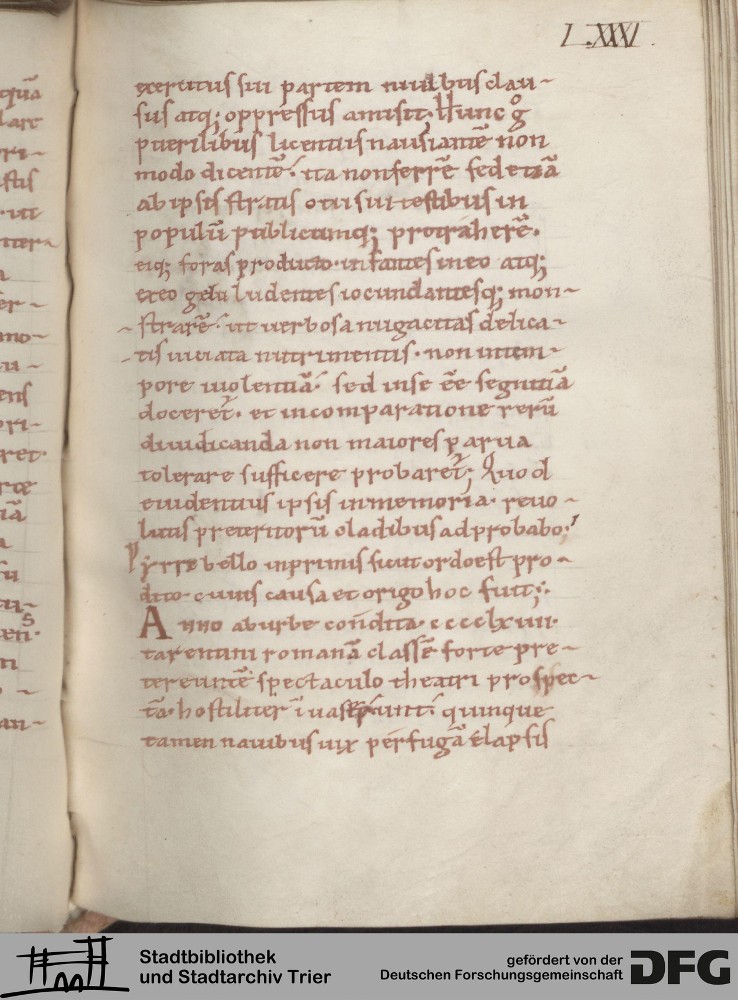 LXXXI
exercitus sui partem niuibus clau-
sus atq; oppressus amisit; Hunc g°
puerilibus licentiis nausiantē non
modo dicentē. ita non ferrē sed etiā
ab ipsis stratis otii sui uestibus in
populū publicumq; protraherē.
eiq; foras producto. infantes in eo atq;
ex eo gelu ludentes iocundantesq; mon-
strarē. ut uerbosa nugacitas delica-
tis uiciata nutrimentis. non in tem-
pore uiolentiā. sed in se ēe segnitiā
doceret. et in comparatione rerū
diiudicanda non maiores parua
tolerare sufficere probaret; Quod
euidentius ipsis in memoria. reuo-
lutis preteritorū cladibus adprobabo;
Pyrrr bello inprimis sicut ordo est pro-
dito. cuius causa et origo hoc fuit;
Anno ab urbe condita. cccclxiiii.
tarentini romanā classē forte pre-
tereuntē spectaculo theatri prospec-
tā. hostiliter inuaserunt. quinque
tamen nauibus uix per fugā elapsis
quā
ri-
stis
a
er-
mo-
ens
ret.
iā
a
an-
Stadtbibliothek
und Stadtarchiv Trier
gefördert von der
Deutschen Forschungsgemeinschaft
DFG